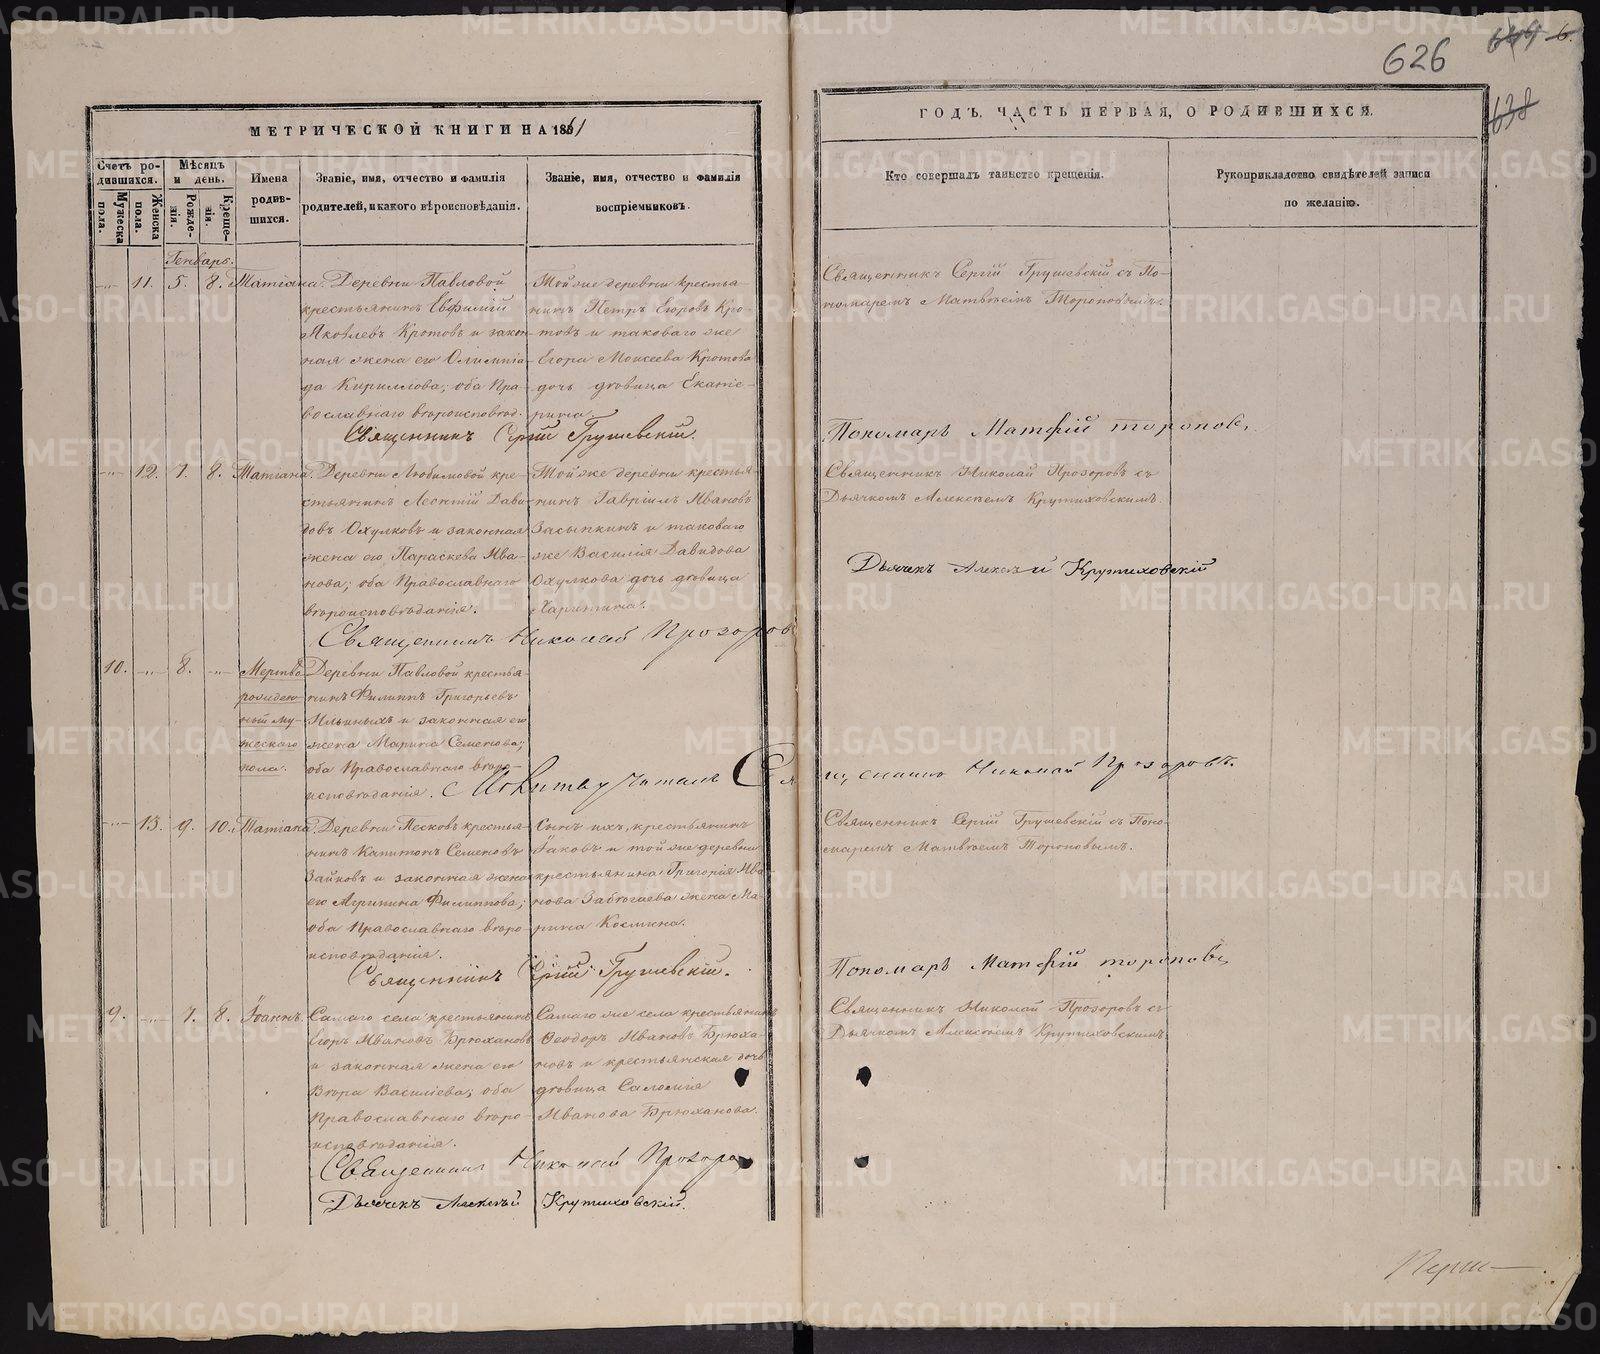 626
638
МЕТРИЧЕСКОЙ КНИГИ НА 1861
ГОДЪ, ЧАСТЬ ПЕРВАЯ, О РОДИВШИХСЯ.
Счетъ ро-
дившихся.
Мужеска
пола.
Женска
пола.
Мѣсяцъ
и день.
Рожде-
нія.
Креще-
нія.
Имена
родив-
шихся.
Званіе, имя, отчество и фамилія
родителей, и какого вѣроисповѣданія.
Званіе, имя, отчество и фамилія
воспріемниковъ.
Кто совершалъ таинство крещенія.
Рукоприкладство свидѣтелей записи
по желанію.
Генварь.
11. 5. 8. Татіана.
Деревни Павловой
крестьянинъ Евфимій
Яковлевъ Кротовъ и закон-
ная жена его Олимпіа-
да Кириллова; оба Пра-
вославнаго вѣроисповѣд.
Тойже деревни крестья-
нинъ Петръ Егоровъ Кро-
товъ и таковаго же
Егора Моисеева Кротова
дочь дѣвица Екате-
рина.
Священникъ Сергій Грушевскій съ По-
номаремъ Матвѣемъ Тороповымъ.
Священникъ Сергій Грушевскій.
Пономарь Матфій Торопов
12. 7. 8. Татіана
Деревни Любимовой кре-
стьянинъ Леонтій Дави-
довъ Охулковъ и законная
жена его Параскева Ива-
нова; оба Православнаго
вѣроисповѣданія.
Тойже деревни крестья-
нинъ Гавріилъ Ивановъ
Засыпкинъ и таковаго
же Василія Давидова
Охулкова дочь дѣвица
Харитина.
Священникъ Николай Прозоровъ съ
Дьячкомъ Алексѣемъ Крутиховскимъ.
Дьячекъ Алексѣй Крутиховскій
Священникъ Николай Прозоров
10. 8.
Мертво
рожден-
ный му-
жескаго
пола.
Деревни Павловой крестья-
нинъ Филиппъ Григорьевъ
Ильиныхъ и законная его
жена Марина Семенова;
оба Православнаго вѣро-
исповѣданія.
Молитву читалъ Священникъ Николай Прозоровъ
13. 9. 10. Татіана
Деревни Песковъ крестья-
нинъ Капитонъ Семеновъ
Зайковъ и законная жена
его Агрипина Филиппова;
оба Православнаго вѣро-
исповѣданія.
Сынъ ихъ, крестьянинъ
Іаковъ и той же деревни
крестьянина Григорія Ива
нова жена Ма-
рина Космина.
Священникъ Сергій Грушевскій съ Поно-
маремъ Матвѣемъ Тороповымъ.
Священникъ Сергій Грушевскій.
Пономарь Матфій Торопове
9. 7. 8. Іоаннъ.
Самаго села крестьянинъ
Егоръ Ивановъ Брюхановъ
и законная жена его
Вѣра Василіева; оба
Православнаго вѣро-
исповѣданія.
Самаго же села крестьянинъ
Ѳеодоръ Ивановъ Брюха-
новъ и крестьянская дочь
дѣвица Саломія
Иванова Брюханова.
Священникъ Николай Прозоровъ съ
Дьячкомъ Алексѣемъ Крутиховскимъ.
Священникъ Николай Прозоров
Дьячекъ Алексѣй Крутиховскій.
METRIKI.GASO-URAL.RU